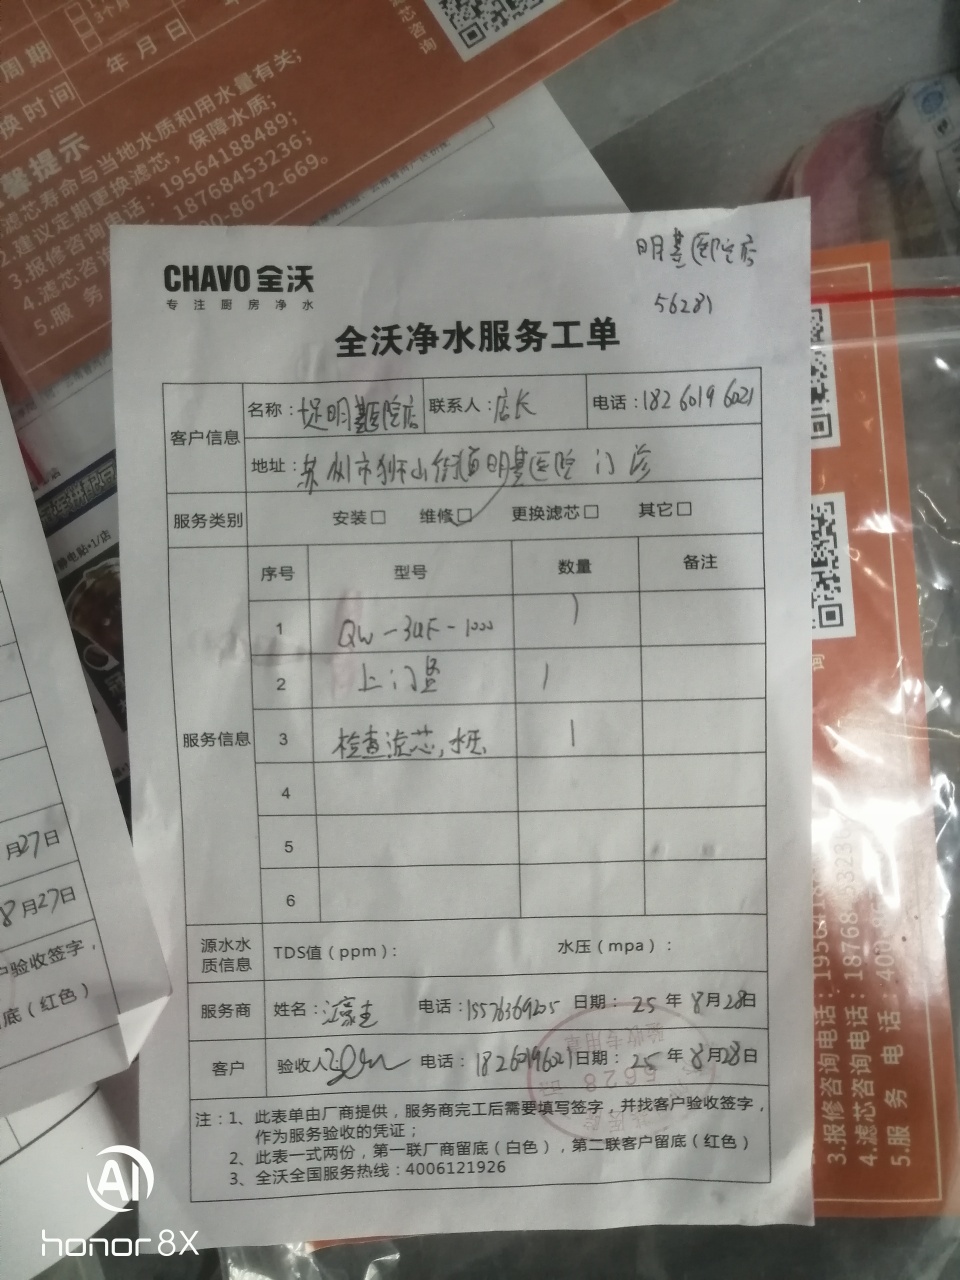 周期
3个月
年 月 日
换时间
滤芯咨询
馨提示
滤芯寿命与当地水质和用水量有关;
建议定期更换滤芯，保障水质;
3.报修咨询电话：19564188489;
4.滤芯咨 18768453236;
5.服 务 00-8672-669。
明基医院店
56281
CHAVO 全沃
专 注 厨 房 净 水
全沃净水服务工单
客户信息
名称： 明基医院店
联系人：店长
电话：18260196021
地址：苏州市狮山街道明基医院 门诊
服务类别
安装□ 维修□ 更换滤芯□ 其它□
服务信息
序号 型号 数量 备注
1 QW-3UF-1000 1
2 上门 1
3 检查滤芯,水压 1
4
5
6
源水水质信息
TDS值（ppm）： 水压（mpa）：
服务商 姓名： 电话：15576369205 日期：25 年 8月28日
客户 验收人： 电话：18260196021 日期：25 年 8月28日
注：1、此表单由厂商提供，服务商完工后需要填写签字，并找客户验收签字，
作为服务验收的凭证；
2、此表一式两份，第一联厂商留底（白色），第二联客户留底（红色）
3、全沃全国服务热线：4006121926
验收专用章
月27日
8月27日
户验收签字，
底（红色）
3.报修咨询电话：1956418
4.滤芯咨询电话：18768
5.服 务 电 话：400-86
AI
honor 8X